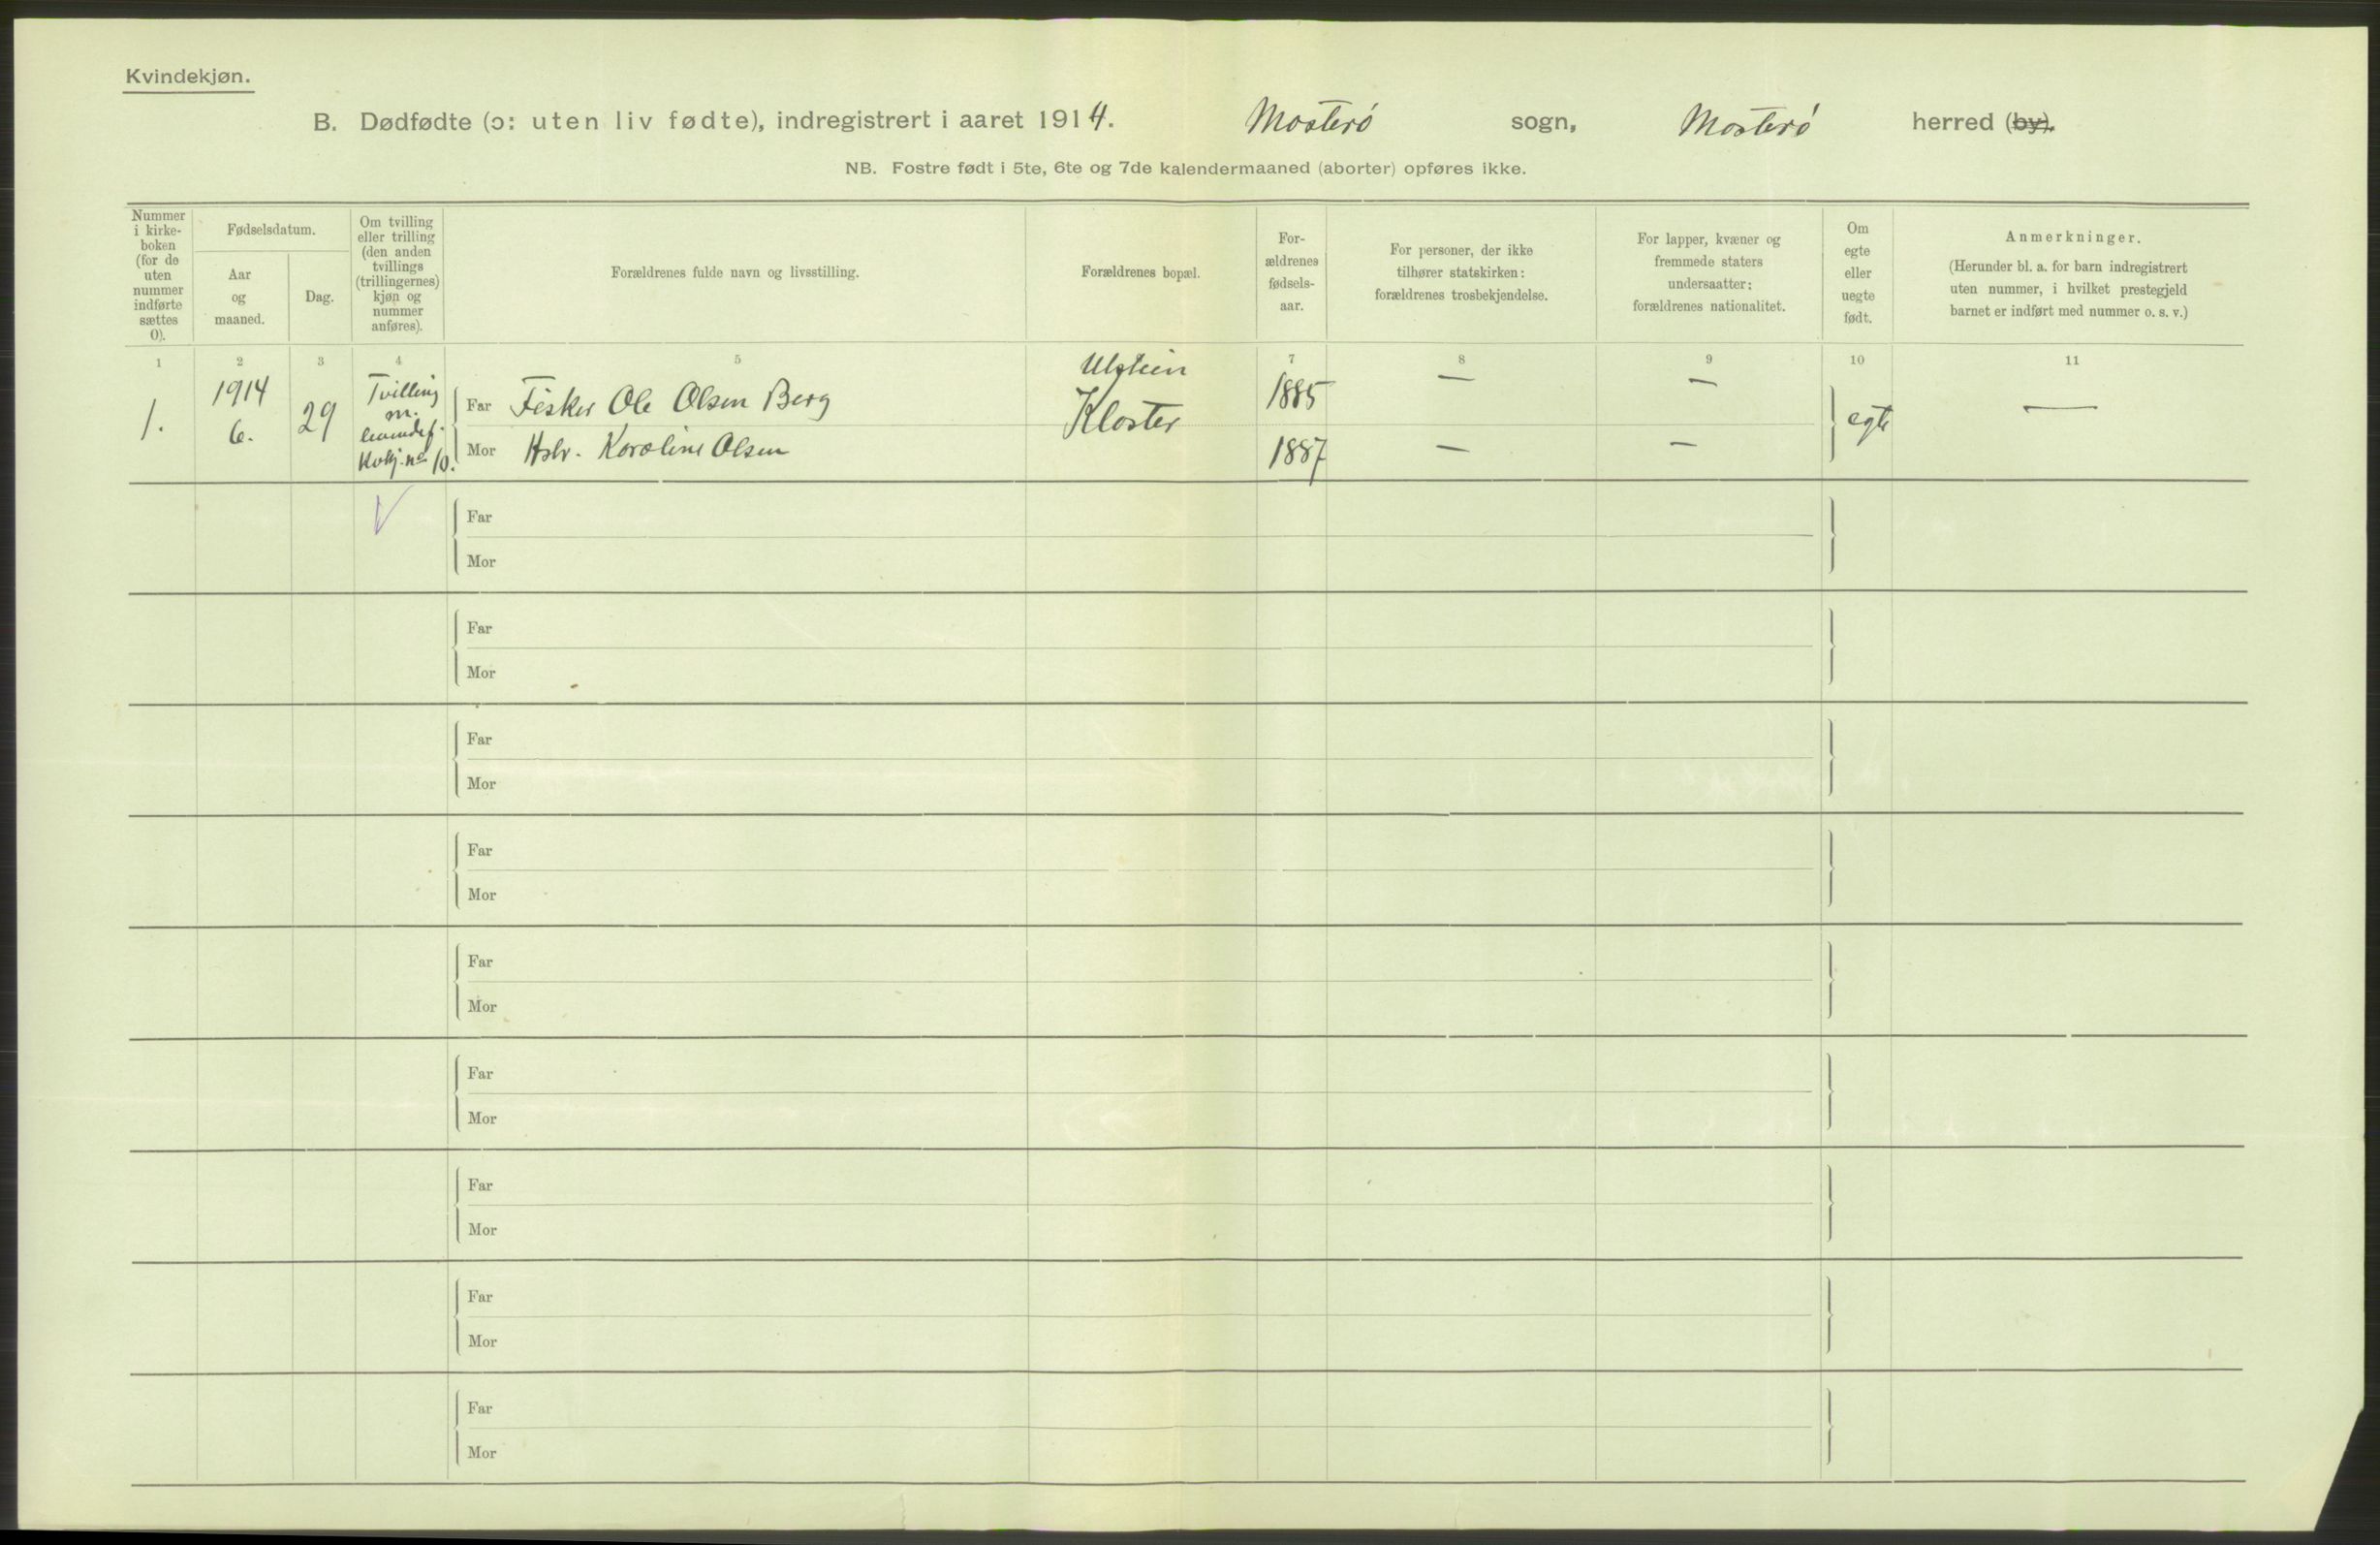 Kvindekjøn.
B. Dødfødte (ɔ: uten liv fødte), indregistrert i aaret 1914. Mosterø sogn, Mosterø herred (by).
NB. Fostre født i 5te, 6te og 7de kalendermaaned (aborter) opføres ikke.
Nummer
i kirke-
boken
(for de
uten
nummer
indførte
sættes
0).
Fødselsdatum.
Aar
og
maaned.
Dag.
Om tvilling
eller trilling
(den anden
tvillings
(trillingernes)
kjøn og
nummer
anføres).
Forældrenes fulde navn og livsstilling.
Forældrenes bopæl.
For-
ældrenes
fødsels-
aar.
For personer, der ikke
tilhører statskirken:
forældrenes trosbekjendelse.
For lapper, kvæner og
fremmede staters
undersaatter:
forældrenes nationalitet.
Om
egte
eller
uegte
født.
Anmerkninger.
(Herunder bl. a. for barn indregistrert
uten nummer, i hvilket prestegjeld
barnet er indført med nummer o. s. v.)
1 2 3 4 5 7 8 9 10 11
1.
1914
6.
29
Tvilling
m.
levendef.
Kvkj. no 10.
Far Fisker Ole Olsen Berg
Mor Hstr. Karoline Olsen
Utstein
Kloster
1885
1887
—
—
—
—
egte
—
Far
Mor
Far
Mor
Far
Mor
Far
Mor
Far
Mor
Far
Mor
Far
Mor
Far
Mor
Far
Mor